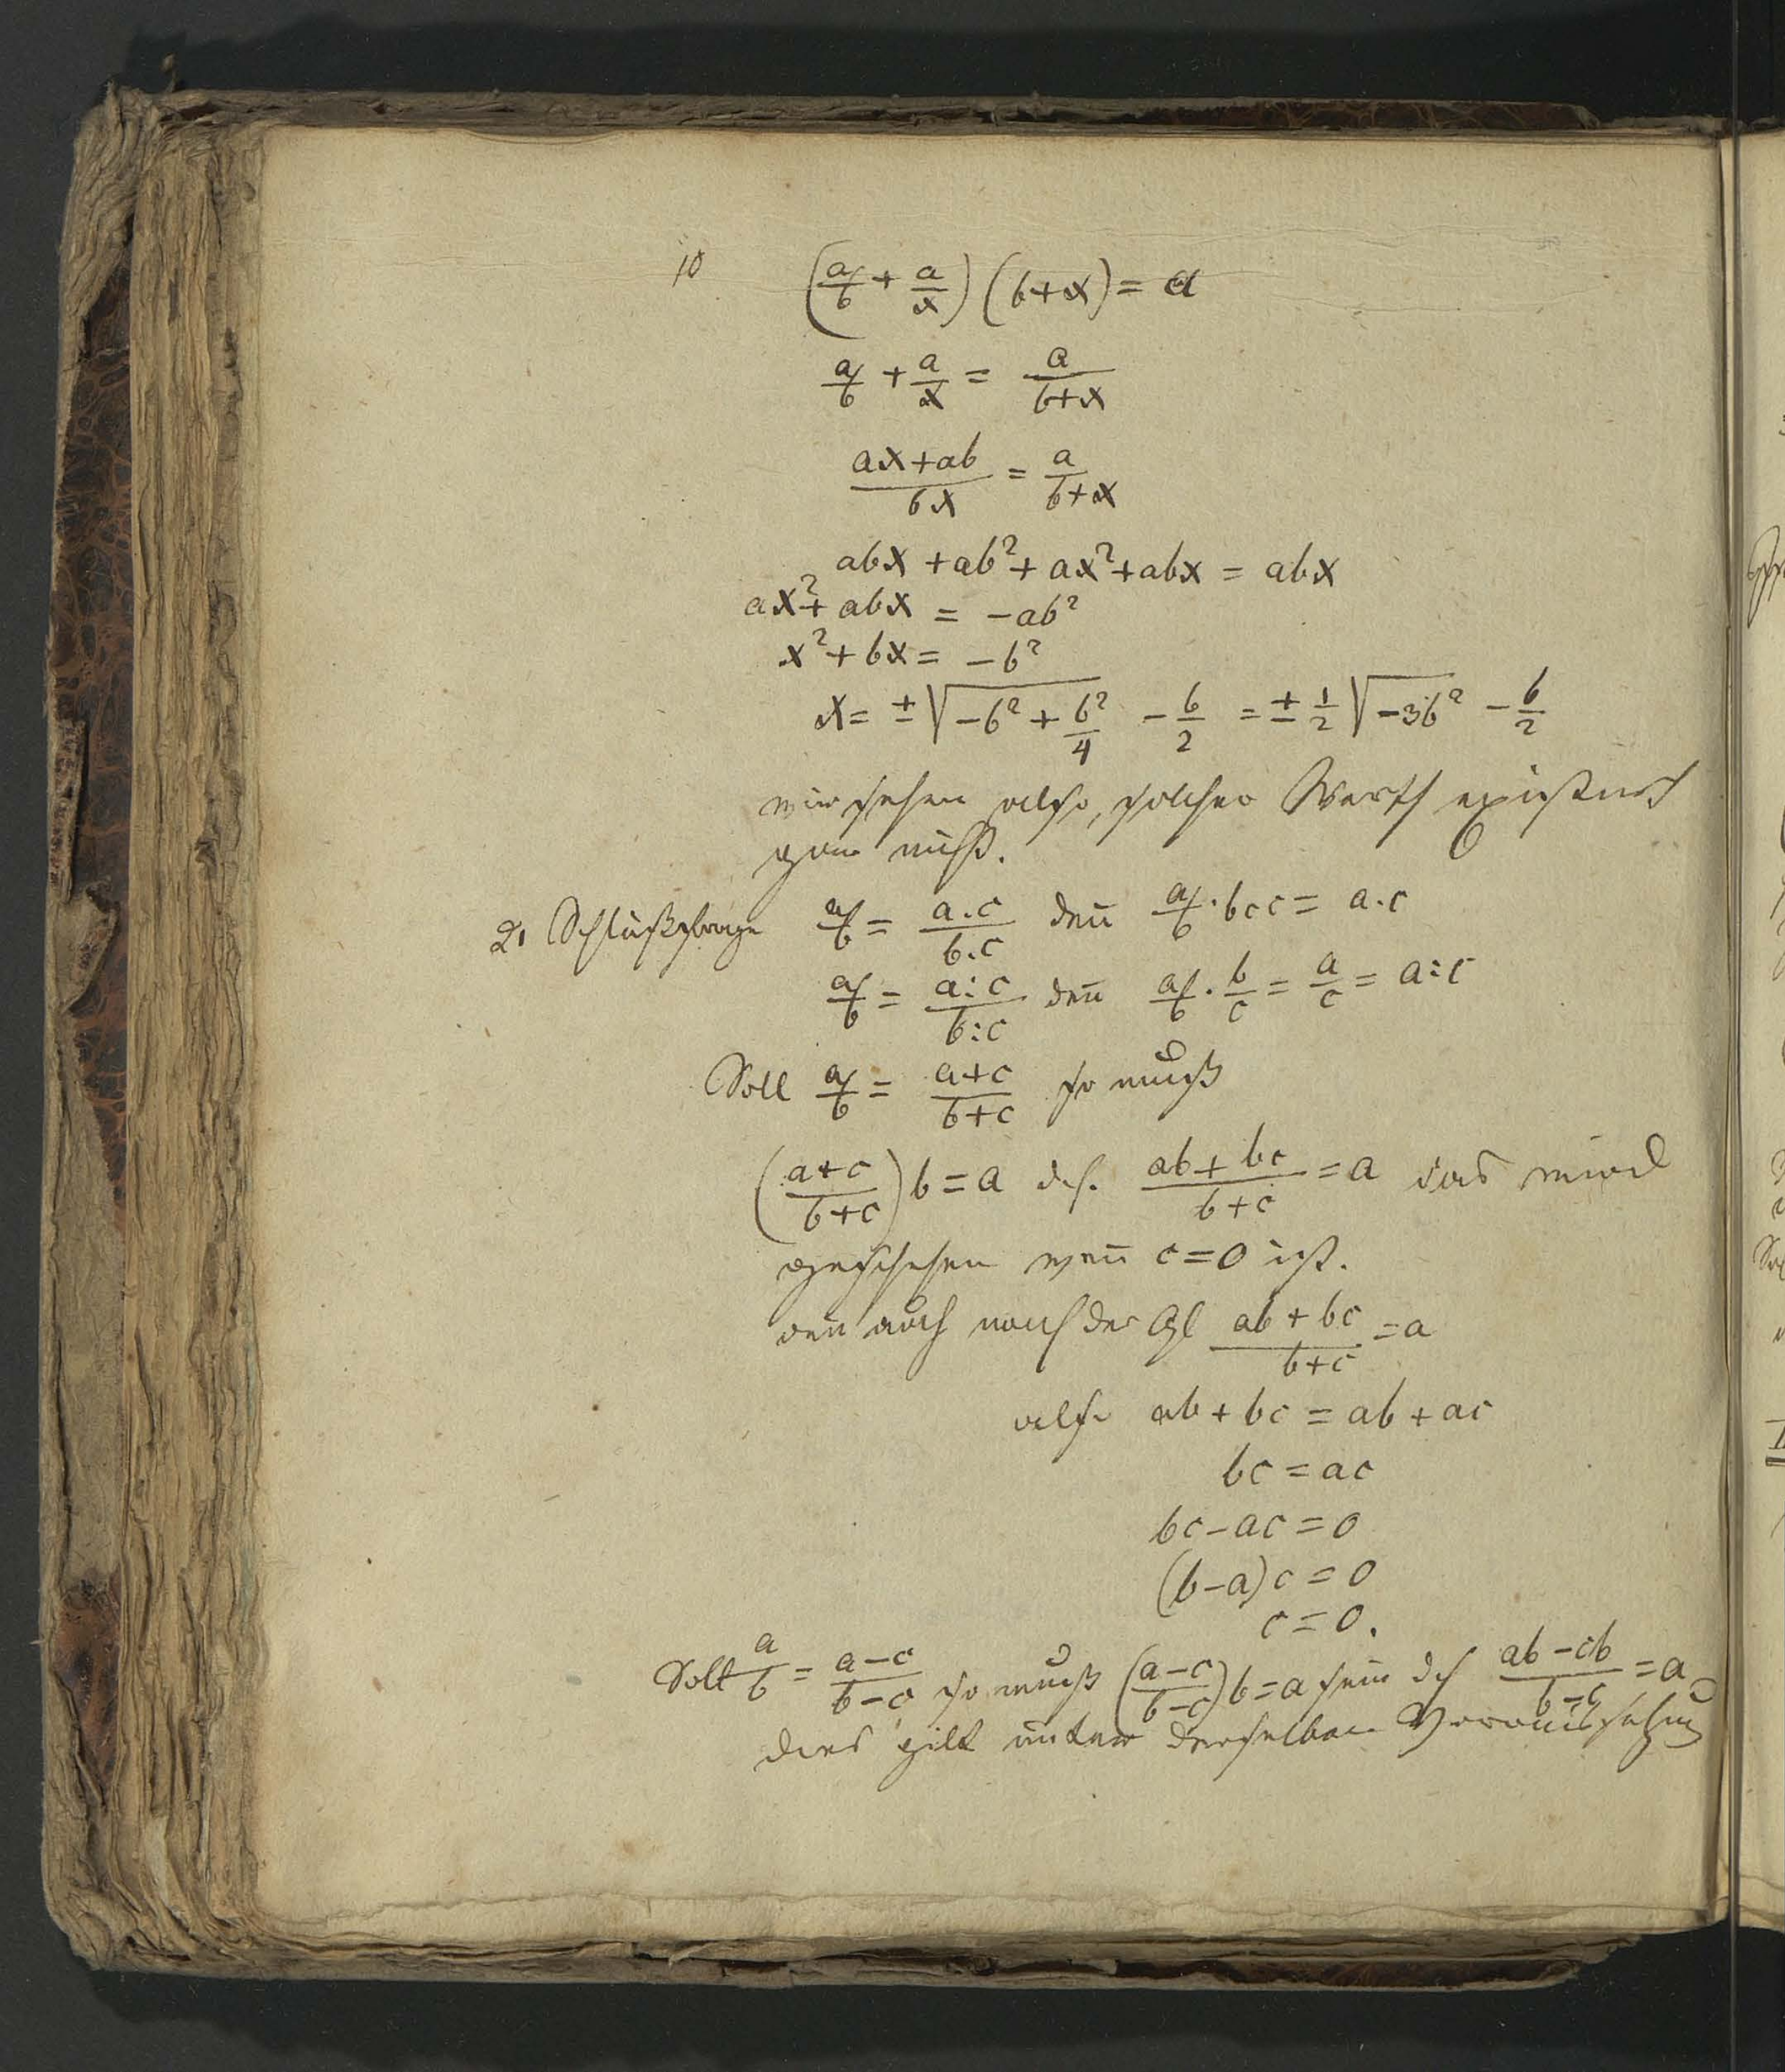 10 (a/b + a/x) (b+x) = a
a/b + a/x = a/(b+x)
(ax+ab)/(bx) = a/(b+x)
abx + ab² + ax² + abx = abx
ax² + abx = -ab²
x² + bx = -b²
x = ± √(-b² + b²/4) - b/2 = ± 1/2 √(-3b²) - b/2
wir sehen also, solcher Werth existirt
gar nicht.
2. Schlußfrage a/b = (a.c)/(b.c) den̄ a/b · b.c = a.c
a/b = (a:c)/(b:c) den̄ a/b · b/c = a/c = a:c
Soll a/b = (a+c)/(b+c) so muß
((a+c)/(b+c)) b = a d.h. (ab+bc)/(b+c) = a das wird
geschehen wen̄ c=0 ist.
den̄ auch nach der Gl (ab+bc)/(b+c) = a
also ab + bc = ab + ac
bc = ac
bc - ac = 0
(b-a)c = 0
c = 0.
Soll a/b = (a-c)/(b-c) so muß ((a-c)/(b-c)) b = a sein dh (ab-cb)/(b-c) = a
dies gilt unter derselben